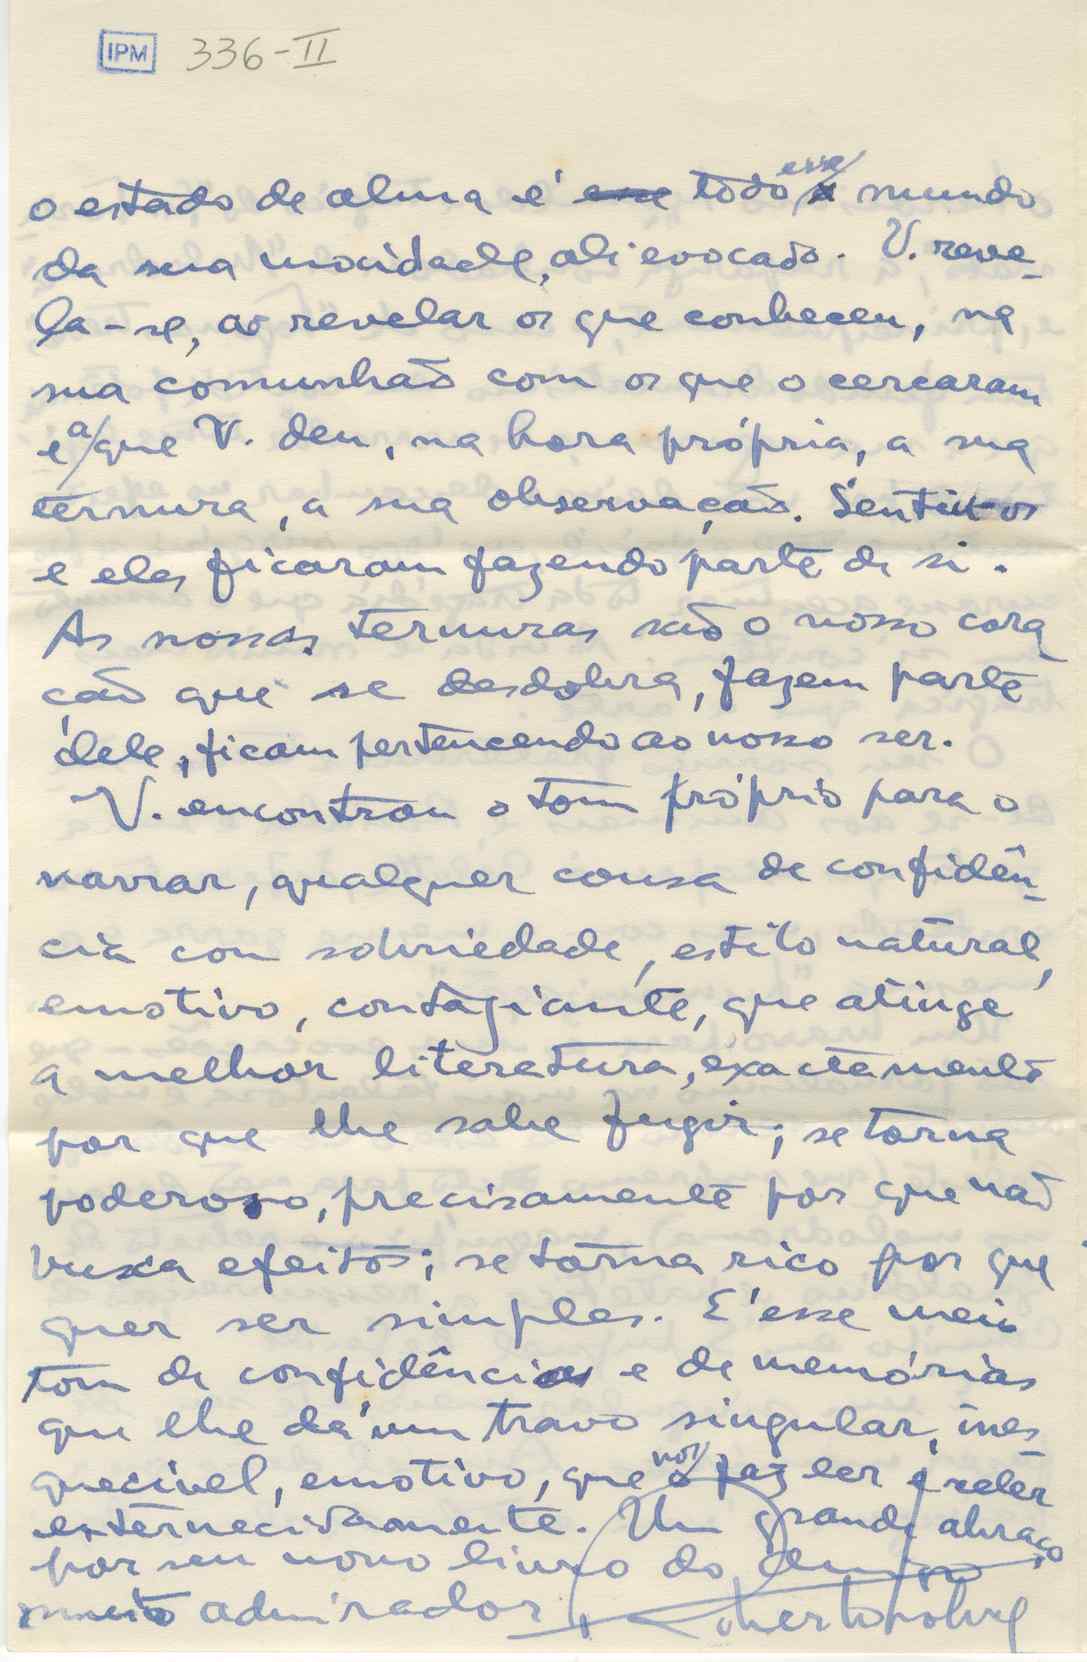 IPM 336-II
o estado de alma é ese todo esse mundo
da sua mocidade, ali evocado. V. reve-
la-se, ao revelar os que conheceu, na
sua comunhão com os que o cercaram
e a que V. deu, na hora própria, a sua
ternura, a sua observação. Sentiu-os
e eles ficaram fazendo parte de si.
As nossas ternuras são o nosso cora
ção que se desdobra, fazem parte
dele, ficam pertencendo ao nosso ser.
V. encontrou o tom próprio para o
narrar, qualquer cousa de confidên-
cia com sobriedade, estilo natural,
emotivo, contagiante, que atinge
a melhor literatura, exactamente
por que lhe sabe fugir; se torna
poderoso, precisamente por que não
busca efeitos; se torna rico por que
quer ser simples. E' esse meio
tom de confidências e de memórias
que lhe dá um travo singular, ines-
quecivel, emotivo, que nos faz ler e reler
enternecidamente. Um grande abraço
por seu novo livro do amigo
muito admirador
Roberto Nobre